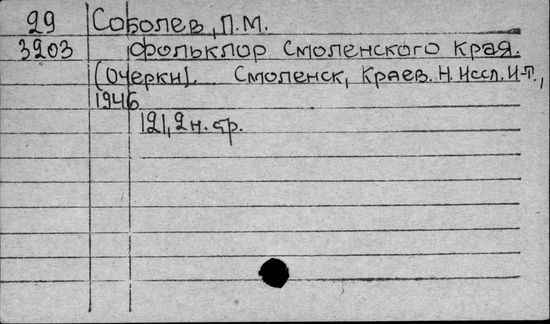 29 Соболев, П.М.
3203 Фольклор Смоленского края.
(Очерки). Смоленск, Краев. Н. Иссл. И-т.,
1946
121, 2 н. стр.